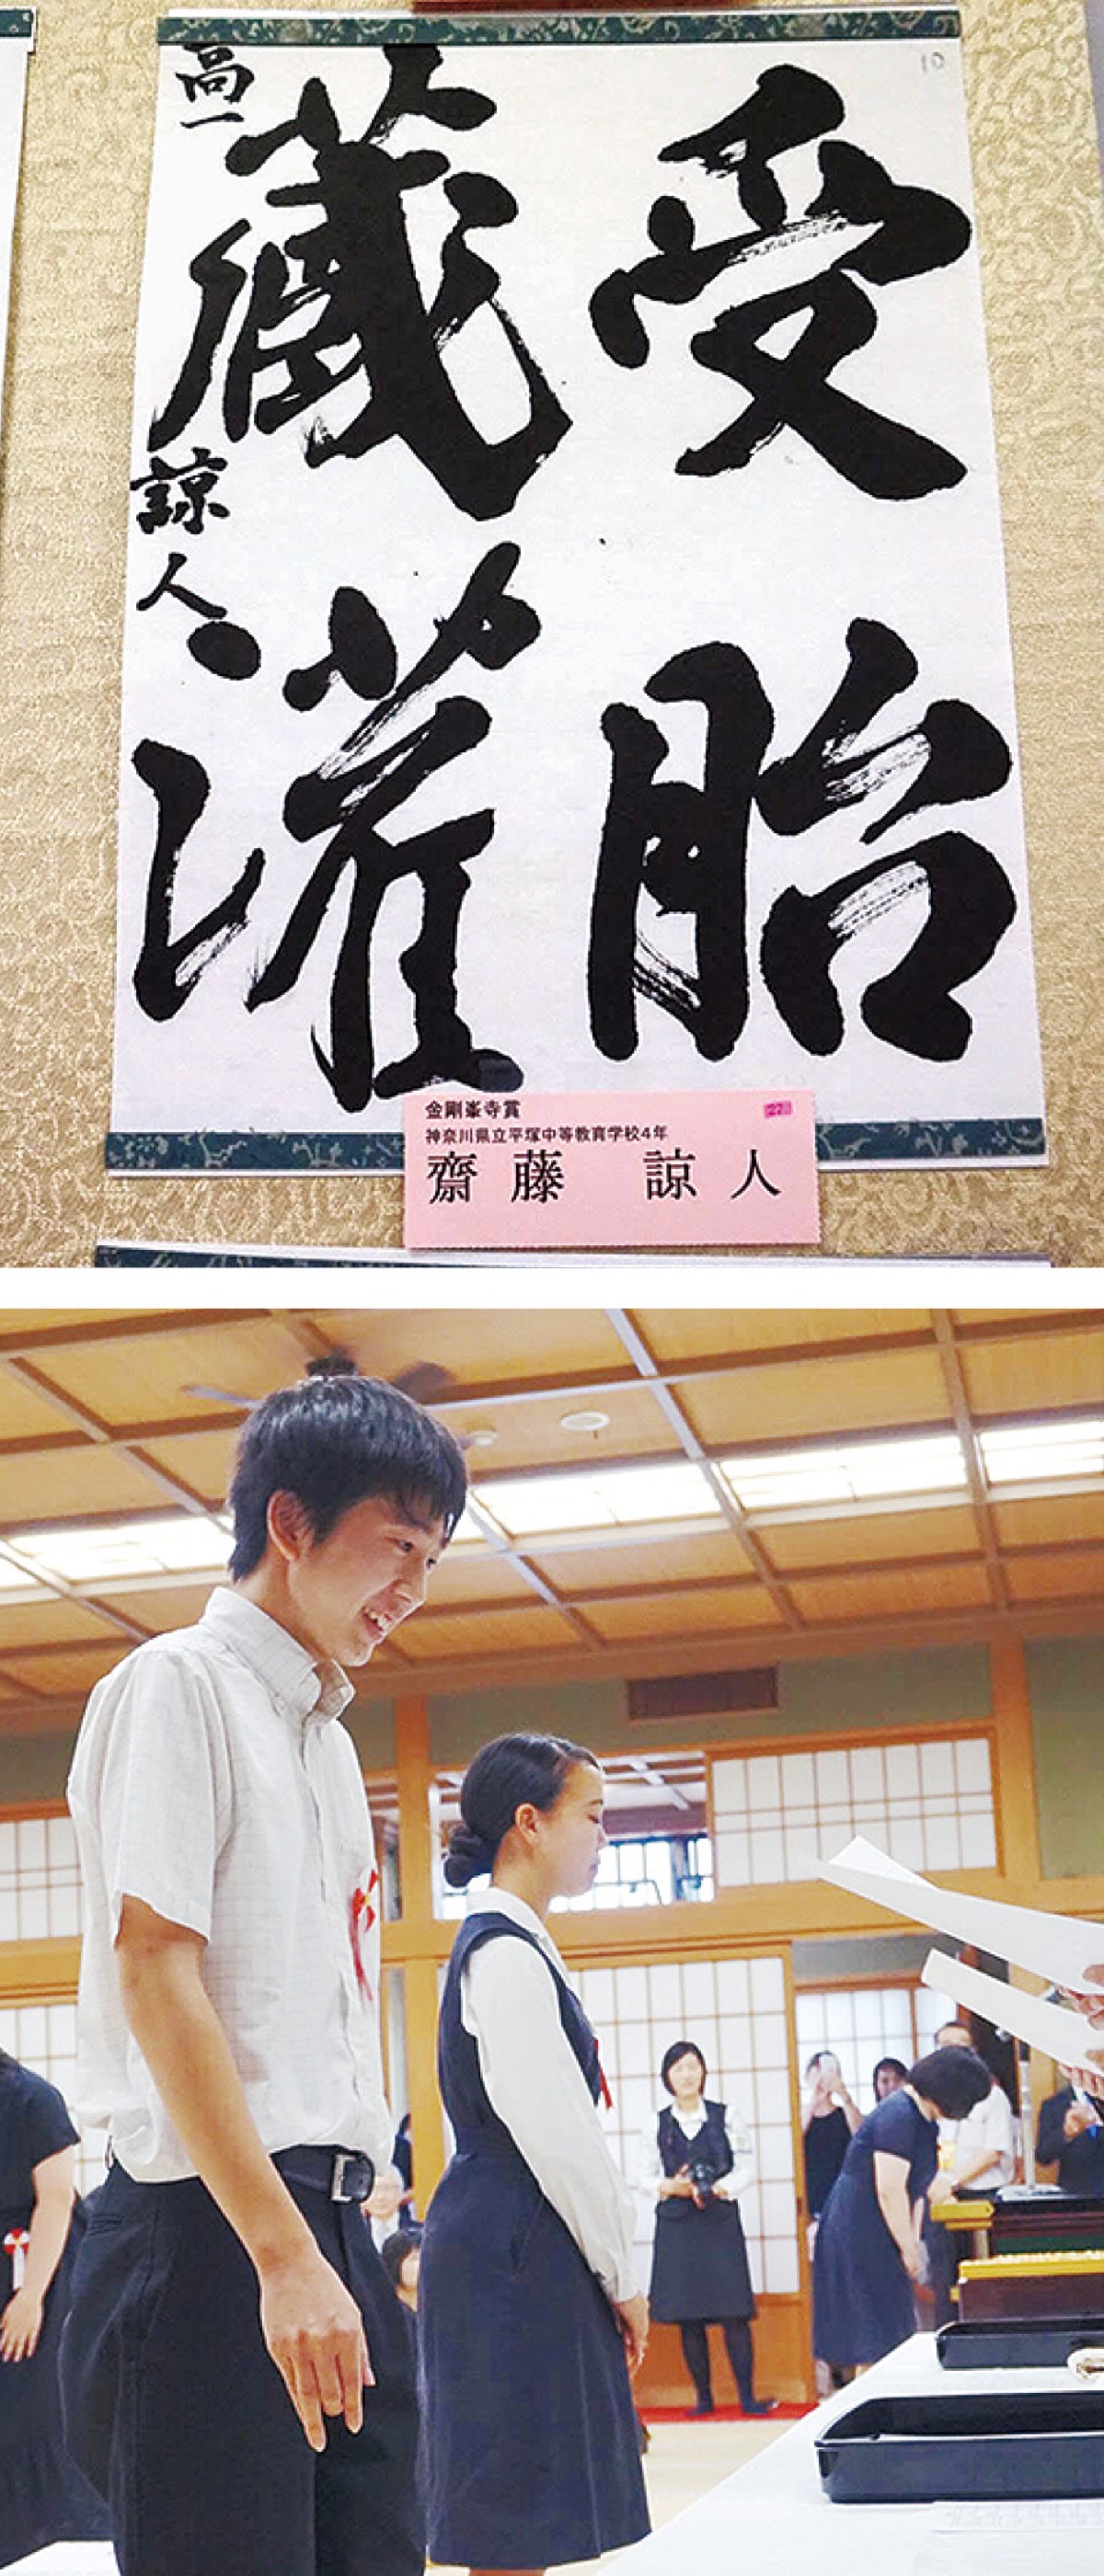 受胎
蔵灌
高一
諒人
10
金剛峯寺賞
神奈川県立平塚中等教育学校4年
齋藤 諒人